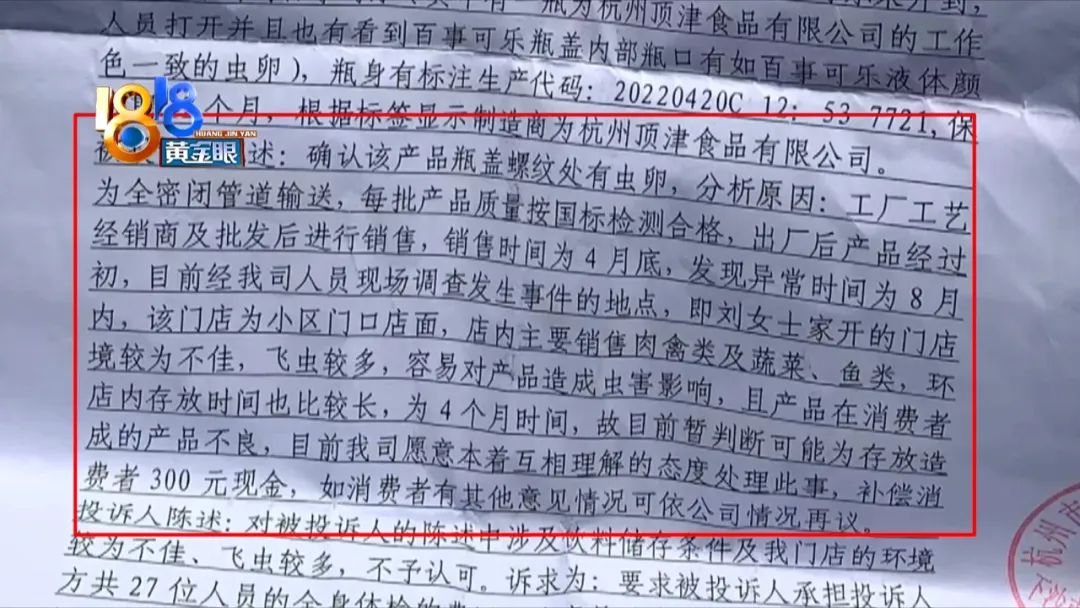 一瓶为杭州顶津食品有限公司的工作
人员打开并且也有看到百事可乐瓶盖内部瓶口有如百事可乐液体颜
色一致的虫卵），瓶身有标注生产代码：20220420C 12：53 7721,保
个月，根据标签显示制造商为杭州顶津食品有限公司。
述：确认该产品瓶盖螺纹处有虫卵，分析原因：工厂工艺
为全密闭管道输送，每批产品质量按国标检测合格，出厂后产品经过
经销商及批发后进行销售，销售时间为4月底，发现异常时间为8月
初，目前经我司人员现场调查发生事件的地点，即刘女士家开的门店
内，该门店为小区门口店面，店内主要销售肉禽类及蔬菜、鱼类，环
境较为不佳，飞虫较多，容易对产品造成虫害影响，且产品在消费者
店内存放时间也比较长，为4个月时间，故目前暂判断可能为存放造
成的产品不良，目前我司愿意本着互相理解的态度处理此事，补偿消
费者300元现金，如消费者有其他意见情况可依公司情况再议。
投诉人陈述：对被投诉人的陈述中涉及饮料储存条件及我门店的环境
较为不佳、飞虫较多，不予认可。诉求为：要求被投诉人承担投诉人
方共27位人员的全身体检的费
1818
HUANG JIN YAN
黄金眼
杭州市